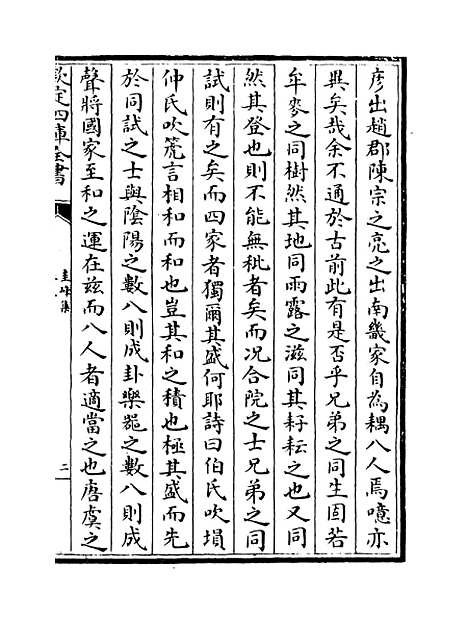 彦出趙郡陳宗之亮之出南畿家自為耦八人焉噫亦
異矣哉余不通於古前此有是否乎兄弟之同生固若
牟麥之同樹然其地同雨露之滋同其耔耘之也又同
然其登也則不能無秕者矣而况合院之士兄弟之同
試則有之矣而四家者獨爾其盛何耶詩曰伯氏吹塤
仲氏吹箎言相和而和也豈其和之積也極其盛而先
於同試之士與陰陽之數八則成卦樂噐之數八則成
聲將國家至和之運在兹而八人者適當之也唐虞之
欽定四庫全書
圭峰集
二